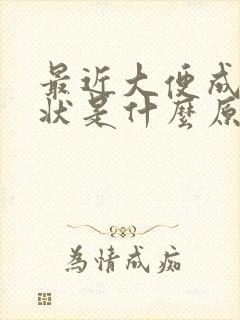 最近大便成
状是什麼原
為情成痴